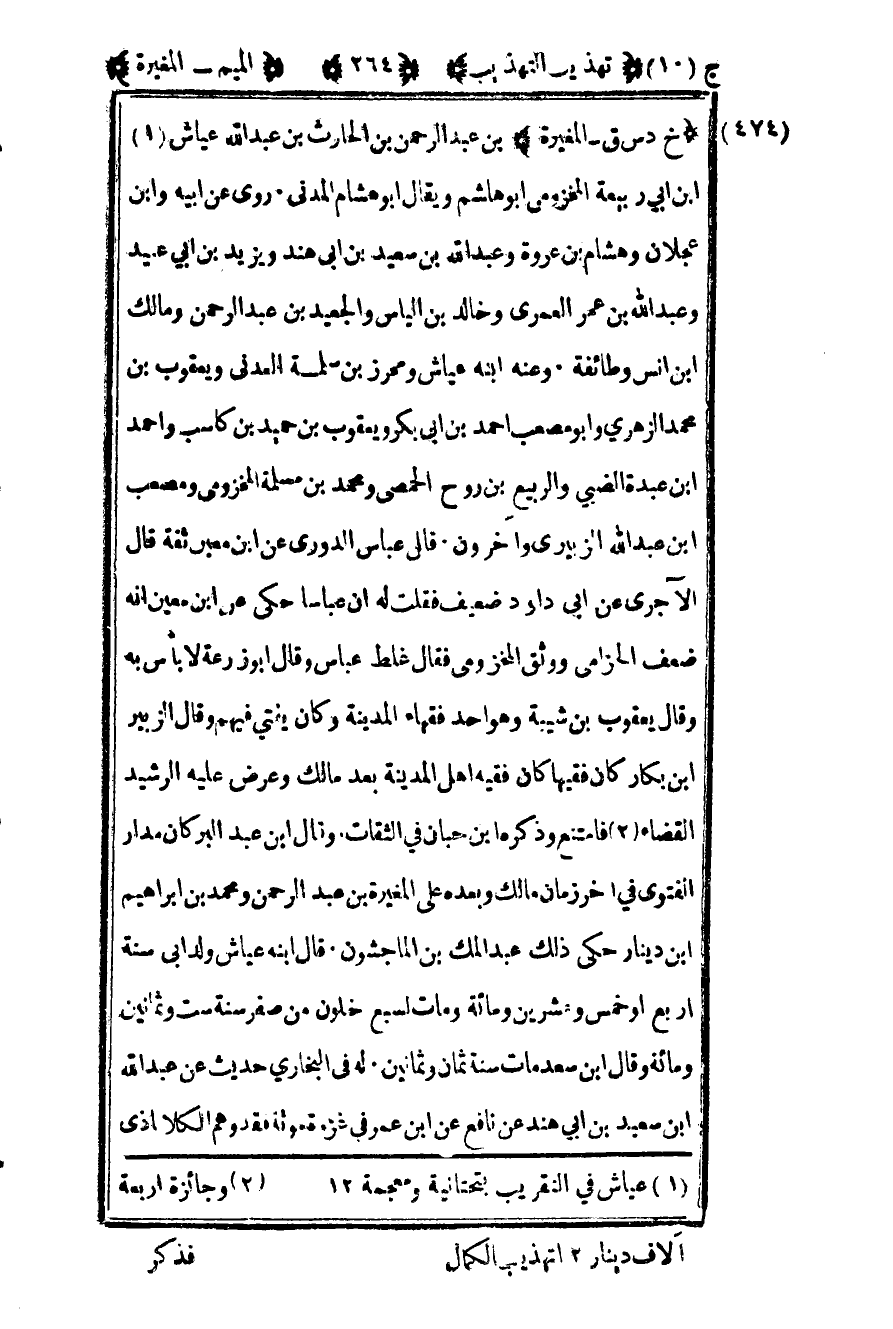 ج (١٠) ﴿ تهذيب التهذيب ﴾ ﴿ ٢٦٤ ﴾ ﴿ الميم ــ المغيرة ﴾
(٤٧٤) ﴿ خ دس ق ــ المغيرة ﴾ بن عبدالرحمن بن الحارث بن عبدالله عياش (١)
ابن ابي ربيعة المخزومى ابوهاشم ويقال ابوهشام المدنى ٠ روى عن ابيه وابن
عجلان وهشام بن عروة وعبدالله بن سعيد بن ابى هند ويزيد بن ابي عبيد
وعبدالله بن عمر العمرى وخالد بن الياس والجعيد بن عبدالرحمن ومالك
ابن انس وطائفة ٠ وعنه ابنه عياش ومحرز بن سلمة العدنى ويعقوب بن
محمد الزهري وابو مصعب احمد بن ابى بكر ويعقوب بن حميد بن كاسب واحمد
ابن عبدة الضبي والربيع بن روح الحمصى ومحمد بن مسلمة المخزومى ومصعب
ابن عبدالله الزبيرى وآخرون ٠ قال عباس الدورى عن ابن معين ثقة قال
الآجرى عن ابي داود ضعيف فقلت له ان عباسا حكى عن ابن معين انه
ضعف الحزامى ووثق المخزومى فقال غلط عباس وقال ابوزرعة لا بأس به
وقال يعقوب بن شيبة وهو احد فقهاء المدينة وكان يفتي فيهم وقال الزبير
ابن بكار كان فقيها كان فقيه اهل المدينة بعد مالك وعرض عليه الرشيد
القضاء (٢) فامتنع وذكره ابن حبان في الثقات ٠ وقال ابن عبد البر كان مدار
الفتوى في اخر زمان مالك وبعده على المغيرة بن عبد الرحمن ومحمد بن ابراهيم
ابن دينار حكى ذلك عبدالملك بن الماجشون ٠ قال ابنه عياش ولد ابى سنة
اربع اوخمس وعشرين ومائة ومات لسبع خلون من صفر سنة ست وثمانين
ومائة وقال ابن سعد مات سنة ثمان وثمانين ٠ له فى البخاري حديث عن عبدالله
ابن سعيد بن ابي هند عن نافع عن ابن عمر في غزوة موتة فقد وهم الكلاباذى
(١) عياش في التقريب بتحتانية ومعجمة ١٢ (٢) وجائزة اربعة
آلاف دينار ١٢ تهذيب الكمال فذكر